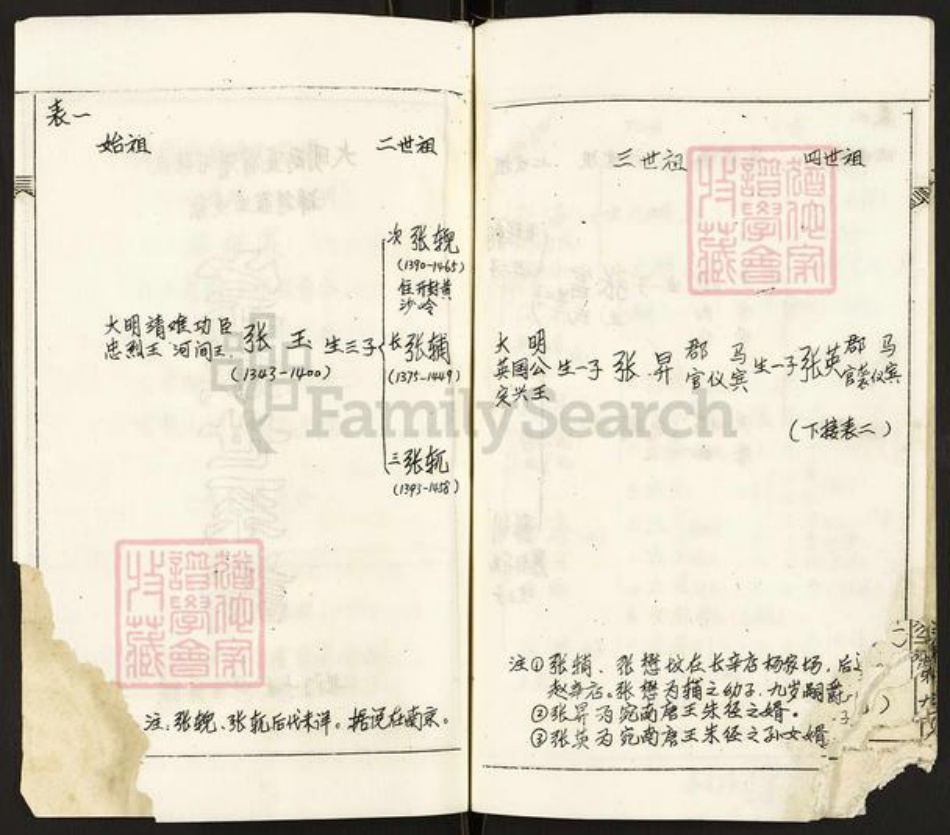 表一
始祖
二世祖
大明靖难功臣
忠烈王 河间王
张 玉 生三子
(1343-1400)
次 张輗
(1390-1465)
住开封黄
沙岭
长 张辅
(1375-1449)
三 张軏
(1393-1458)
注，张輗、张軏后代未详。据说在南京。
三世祖
四世祖
大 明
英国公
定兴王
生一子 张 昇
郡 马
官仪宾
生一子 张英
郡 马
官袭仪宾
(下接表二)
注①张辅、张懋坟在长辛店杨家坟，后
赵辛店。张懋为辅之幼子，九岁嗣爵
②张昇为宛南唐王朱径之婿。
③张英为宛南唐王朱径之孙女婿
譜學會
收藏
譜學會
收藏
FamilySearch